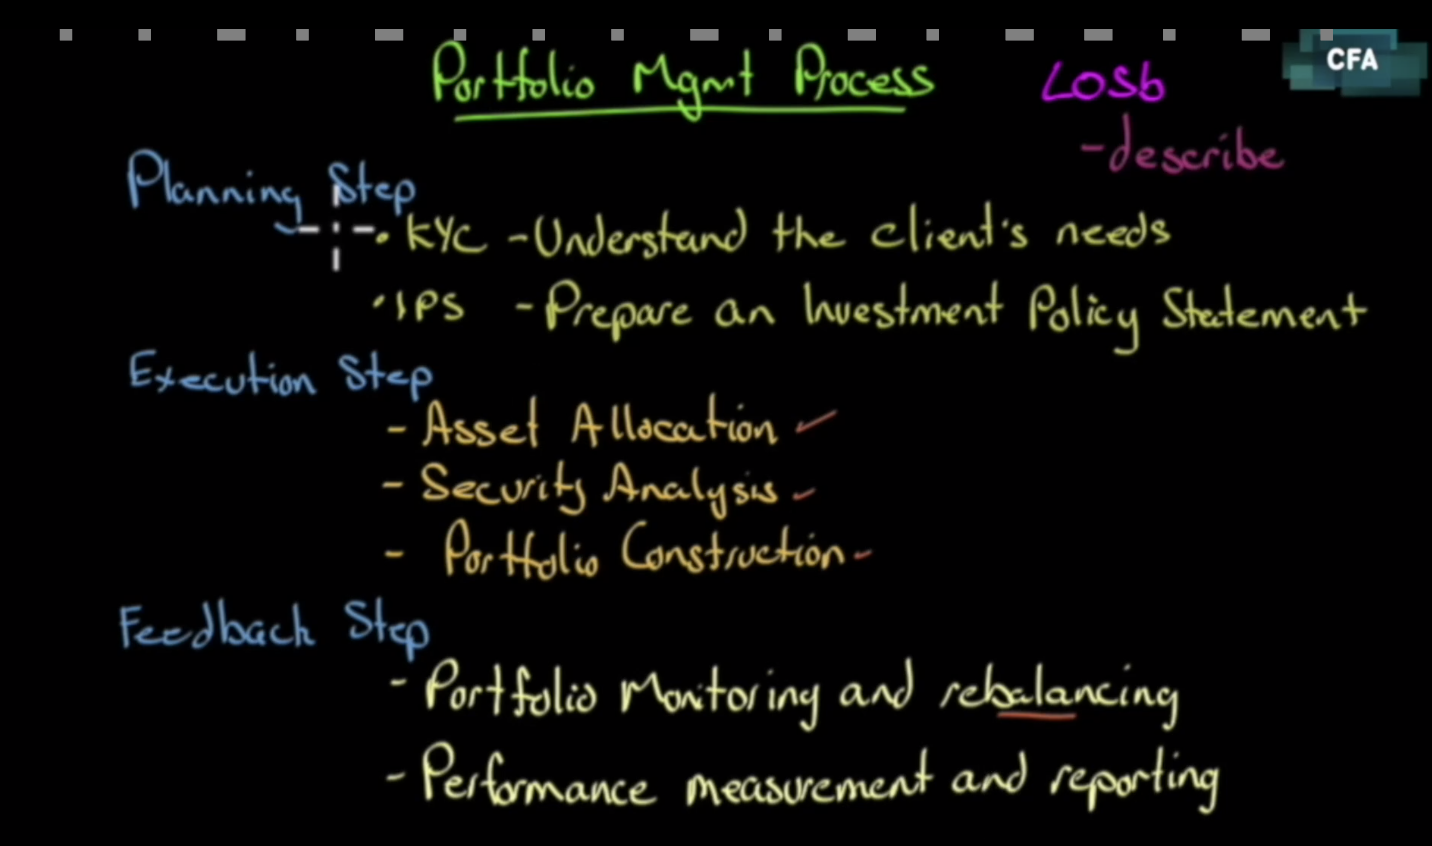 Portfolio Mgmt Process
LOSb
CFA
-describe
Planning Step
• KYC - Understand the client's needs
• IPS - Prepare an Investment Policy Statement
Execution Step
- Asset Allocation ✓
- Security Analysis ✓
- Portfolio Construction -
Feedback Step
- Portfolio Monitoring and rebalancing
- Performance measurement and reporting